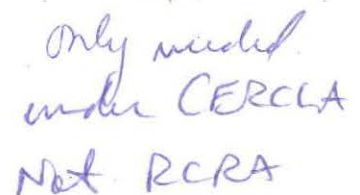 only needed
under CERCLA
Not RCRA